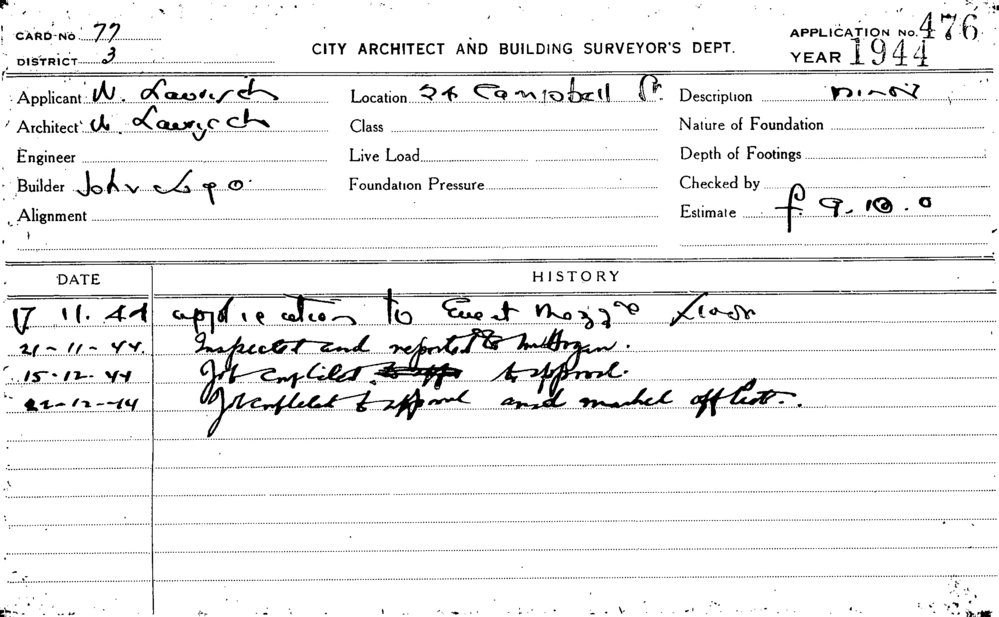 CARD NO 77
DISTRICT 3
CITY ARCHITECT AND BUILDING SURVEYOR'S DEPT.
APPLICATION No. 476
YEAR 1944
Applicant W.
Location Campbell
Description
Architect W.
Class
Nature of Foundation
Engineer
Live Load
Depth of Footings
Builder John
Foundation Pressure
Checked by
Alignment
Estimate £ 9.10.0
DATE HISTORY
17 11.44 application to Erect
21-11-44. Inspected and reported to Mr Hogan.
15-12-44 Job completed to approval.
22-12-44 Job completed to approval and marked off list.